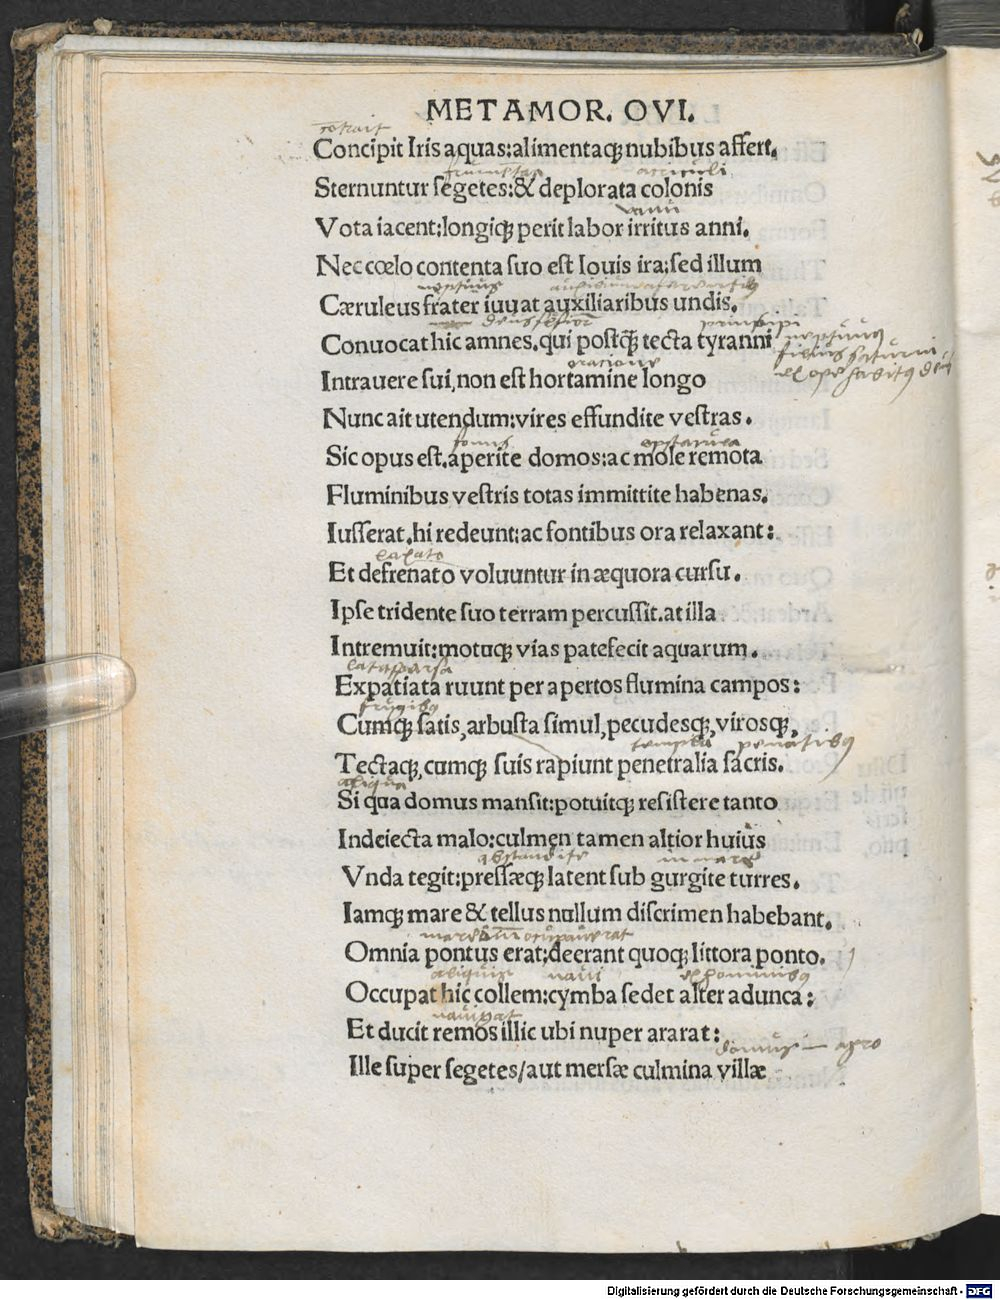 METAMOR. OVI.
Concipit Iris aquas:alimentaq; nubibus affert.
Sternuntur ſegetes:& deplorata colonis
Vota iacent:longiq; perit labor irritus anni.
Nec cœlo contenta ſuo eſt Iouis ira:ſed illum
neptunus
Cæruleus frater iuuat auxiliaribus undis.
Conuocat hic amnes.qui poſtq̃ tecta tyranni
oratione
Intrauere ſui,non eſt hortamine longo
Nunc ait utendum:vires effundite veſtras.
Sic opus eſt.aperite domos:ac mole remota
Fluminibus veſtris totas immittite habenas.
Iuſſerat.hi redeunt:ac fontibus ora relaxant:
Et defrenato voluuntur in æquora curſu.
Ipſe tridente ſuo terram percuſſit.at illa
Intremuit:motuq; vias patefecit aquarum.
Expatiata ruunt per apertos flumina campos:
Cumq; ſatis,arbuſta ſimul,pecudesq;,virosq;,
Tectaq;,cumq; ſuis rapiunt penetralia ſacris.
aliqua
Si qua domus manſit:potuitq; reſiſtere tanto
Indeiecta malo:culmen tamen altior huius
Vnda tegit:preſſæq; latent ſub gurgite turres.
Iamq; mare & tellus nullum diſcrimen habebant.
Omnia pontus erat:deerant quoq; littora ponto.
navi
Occupat hic collem:cymba ſedet alter adunca:
navigat
Et ducit remos illic ubi nuper ararat:
Ille ſuper ſegetes/aut merſæ culmina villæ
Digitalisierung gefördert durch die Deutsche Forschungsgemeinschaft - DFG